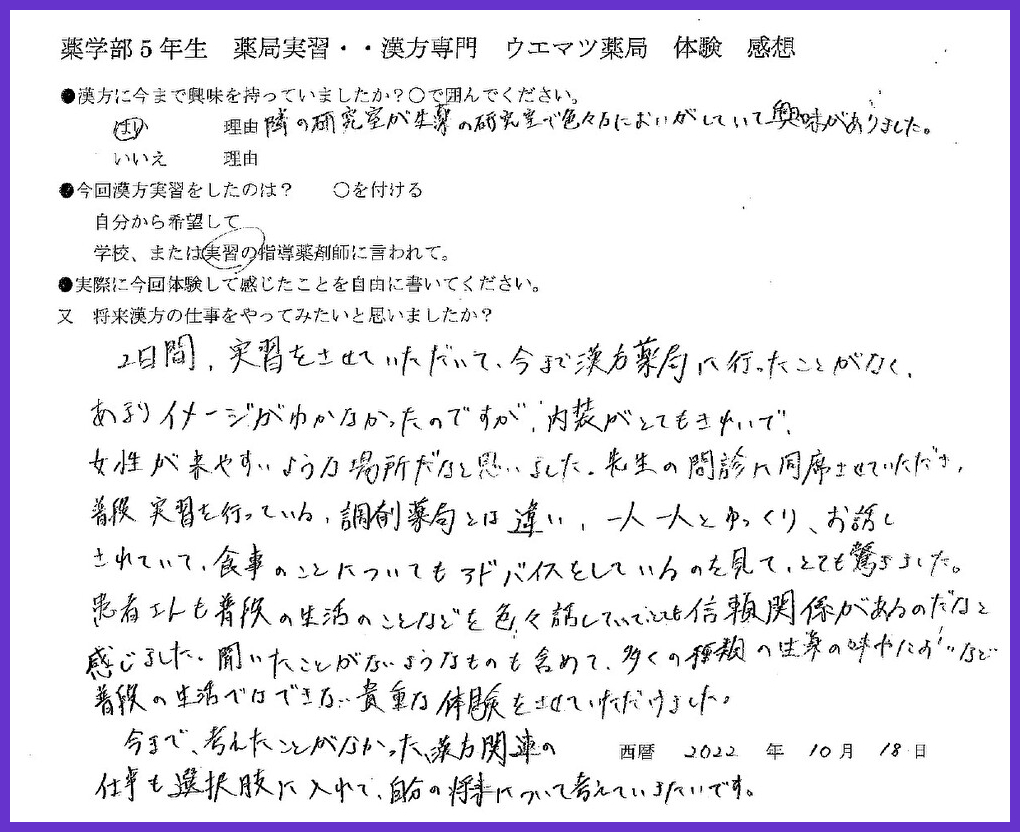 薬学部5年生　薬局実習・・漢方専門　ウエマツ薬局　体験　感想
●漢方に今まで興味を持っていましたか？〇で囲んでください。
はい　理由 隣の研究室が生薬の研究室で色々なにおいがしていて興味がありました。
いいえ　理由
●今回漢方実習をしたのは？　〇を付ける
自分から希望して
学校、または実習の指導薬剤師に言われて。
●実際に今回体験して感じたことを自由に書いてください。
又　将来漢方の仕事をやってみたいと思いましたか？
2日間、実習をさせていただいて、今まで漢方薬局に行ったことがなく、
あまりイメージがわかなかったのですが、内装がとてもきれいで、
女性が来やすいような場所だなと思いました。先生の問診に同席させていただき、
普段実習を行っている、調剤薬局とは違い、一人一人とゆっくり、お話し
されていて、食事のことについてもアドバイスをしているのを見て、とても驚きました。
患者さんも普段の生活のことなどを色々話していて、とても信頼関係があるのだなと
感じました。聞いたことがないようなものも含めて、多くの種類の生薬の味やにおいなど
普段の生活ではできない貴重な体験をさせていただけました。
今まで、考えたことがなかった、漢方関連の
西暦　2022　年　10月　18日
仕事も選択肢に入れて、自分の将来について考えていきたいです。